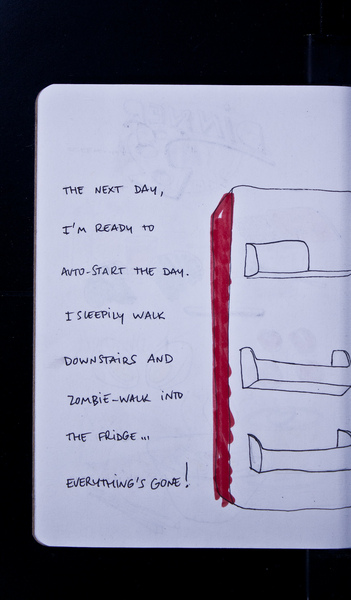 THE NEXT DAY,
I'M READY TO
AUTO-START THE DAY.
I SLEEPILY WALK
DOWNSTAIRS AND
ZOMBIE-WALK INTO
THE FRIDGE...
EVERYTHING'S GONE!